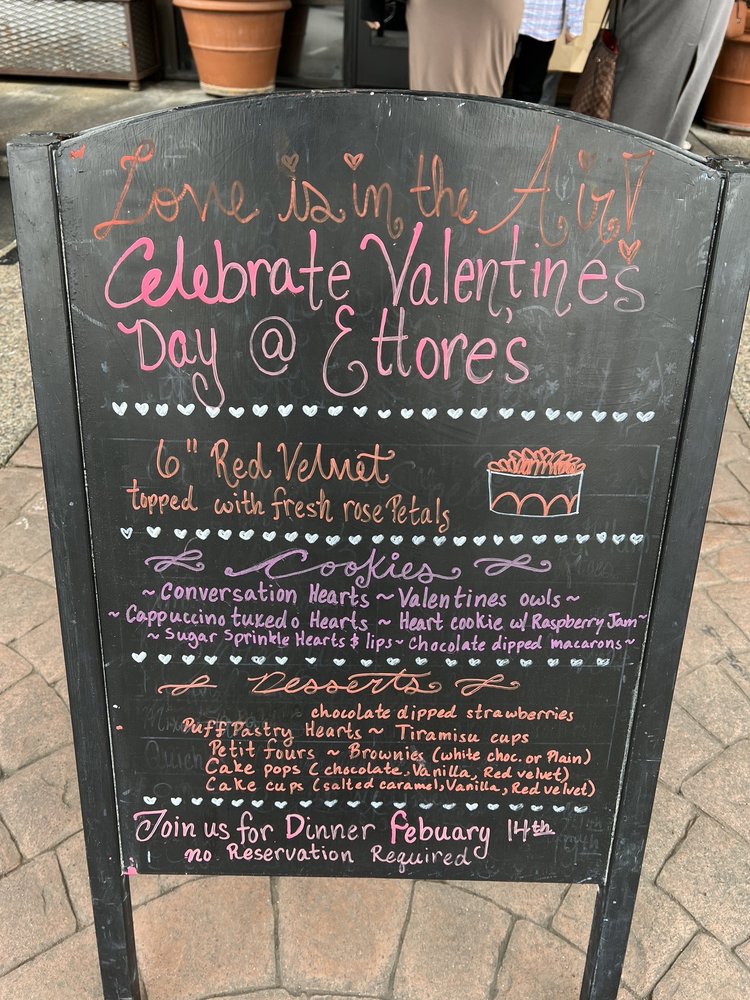 Love is in the Air!
Celebrate Valentine's
Day @ Ettore's
6" Red Velvet
topped with fresh rose Petals
Cookies
~ Conversation Hearts ~ Valentines owls ~
~ Cappuccino tuxedo Hearts ~ Heart cookie w/ Raspberry Jam ~
~ Sugar Sprinkle Hearts & lips ~ Chocolate dipped macarons ~
Desserts
~ chocolate dipped strawberries
Puff Pastry Hearts ~ Tiramisu cups
Petit fours ~ Brownies (white choc. or Plain)
Cake pops (chocolate, Vanilla, Red velvet)
Cake cups (salted caramel, Vanilla, Red velvet)
Join us for Dinner Febuary 14th
no Reservation Required